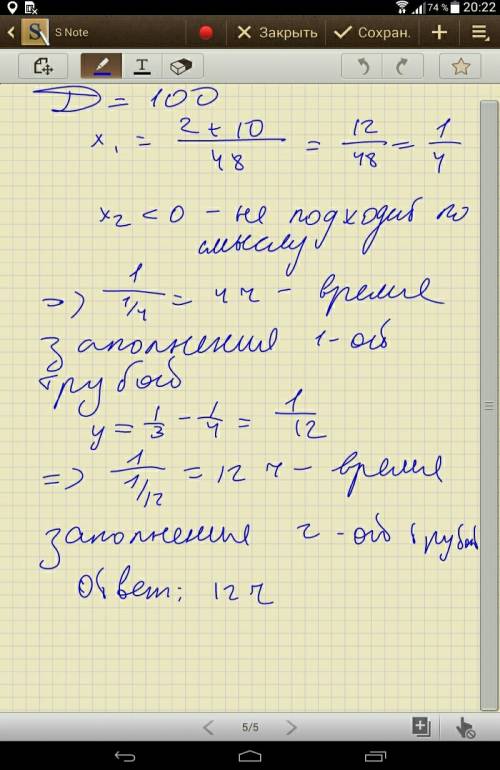 74% 20:22
S Note Закрыть Сохран.
T
D = 100
x₁ = (2 + 10)/48 = 12/48 = 1/4
x₂ < 0 - не подходит по
смыслу
=> 1/(1/4) = 4 ч - время
заполнения 1-ой
трубой
y = 1/3 - 1/4 = 1/12
=> 1/(1/12) = 12 ч - время
заполнения 2-ой трубой
Ответ: 12 ч
5/5